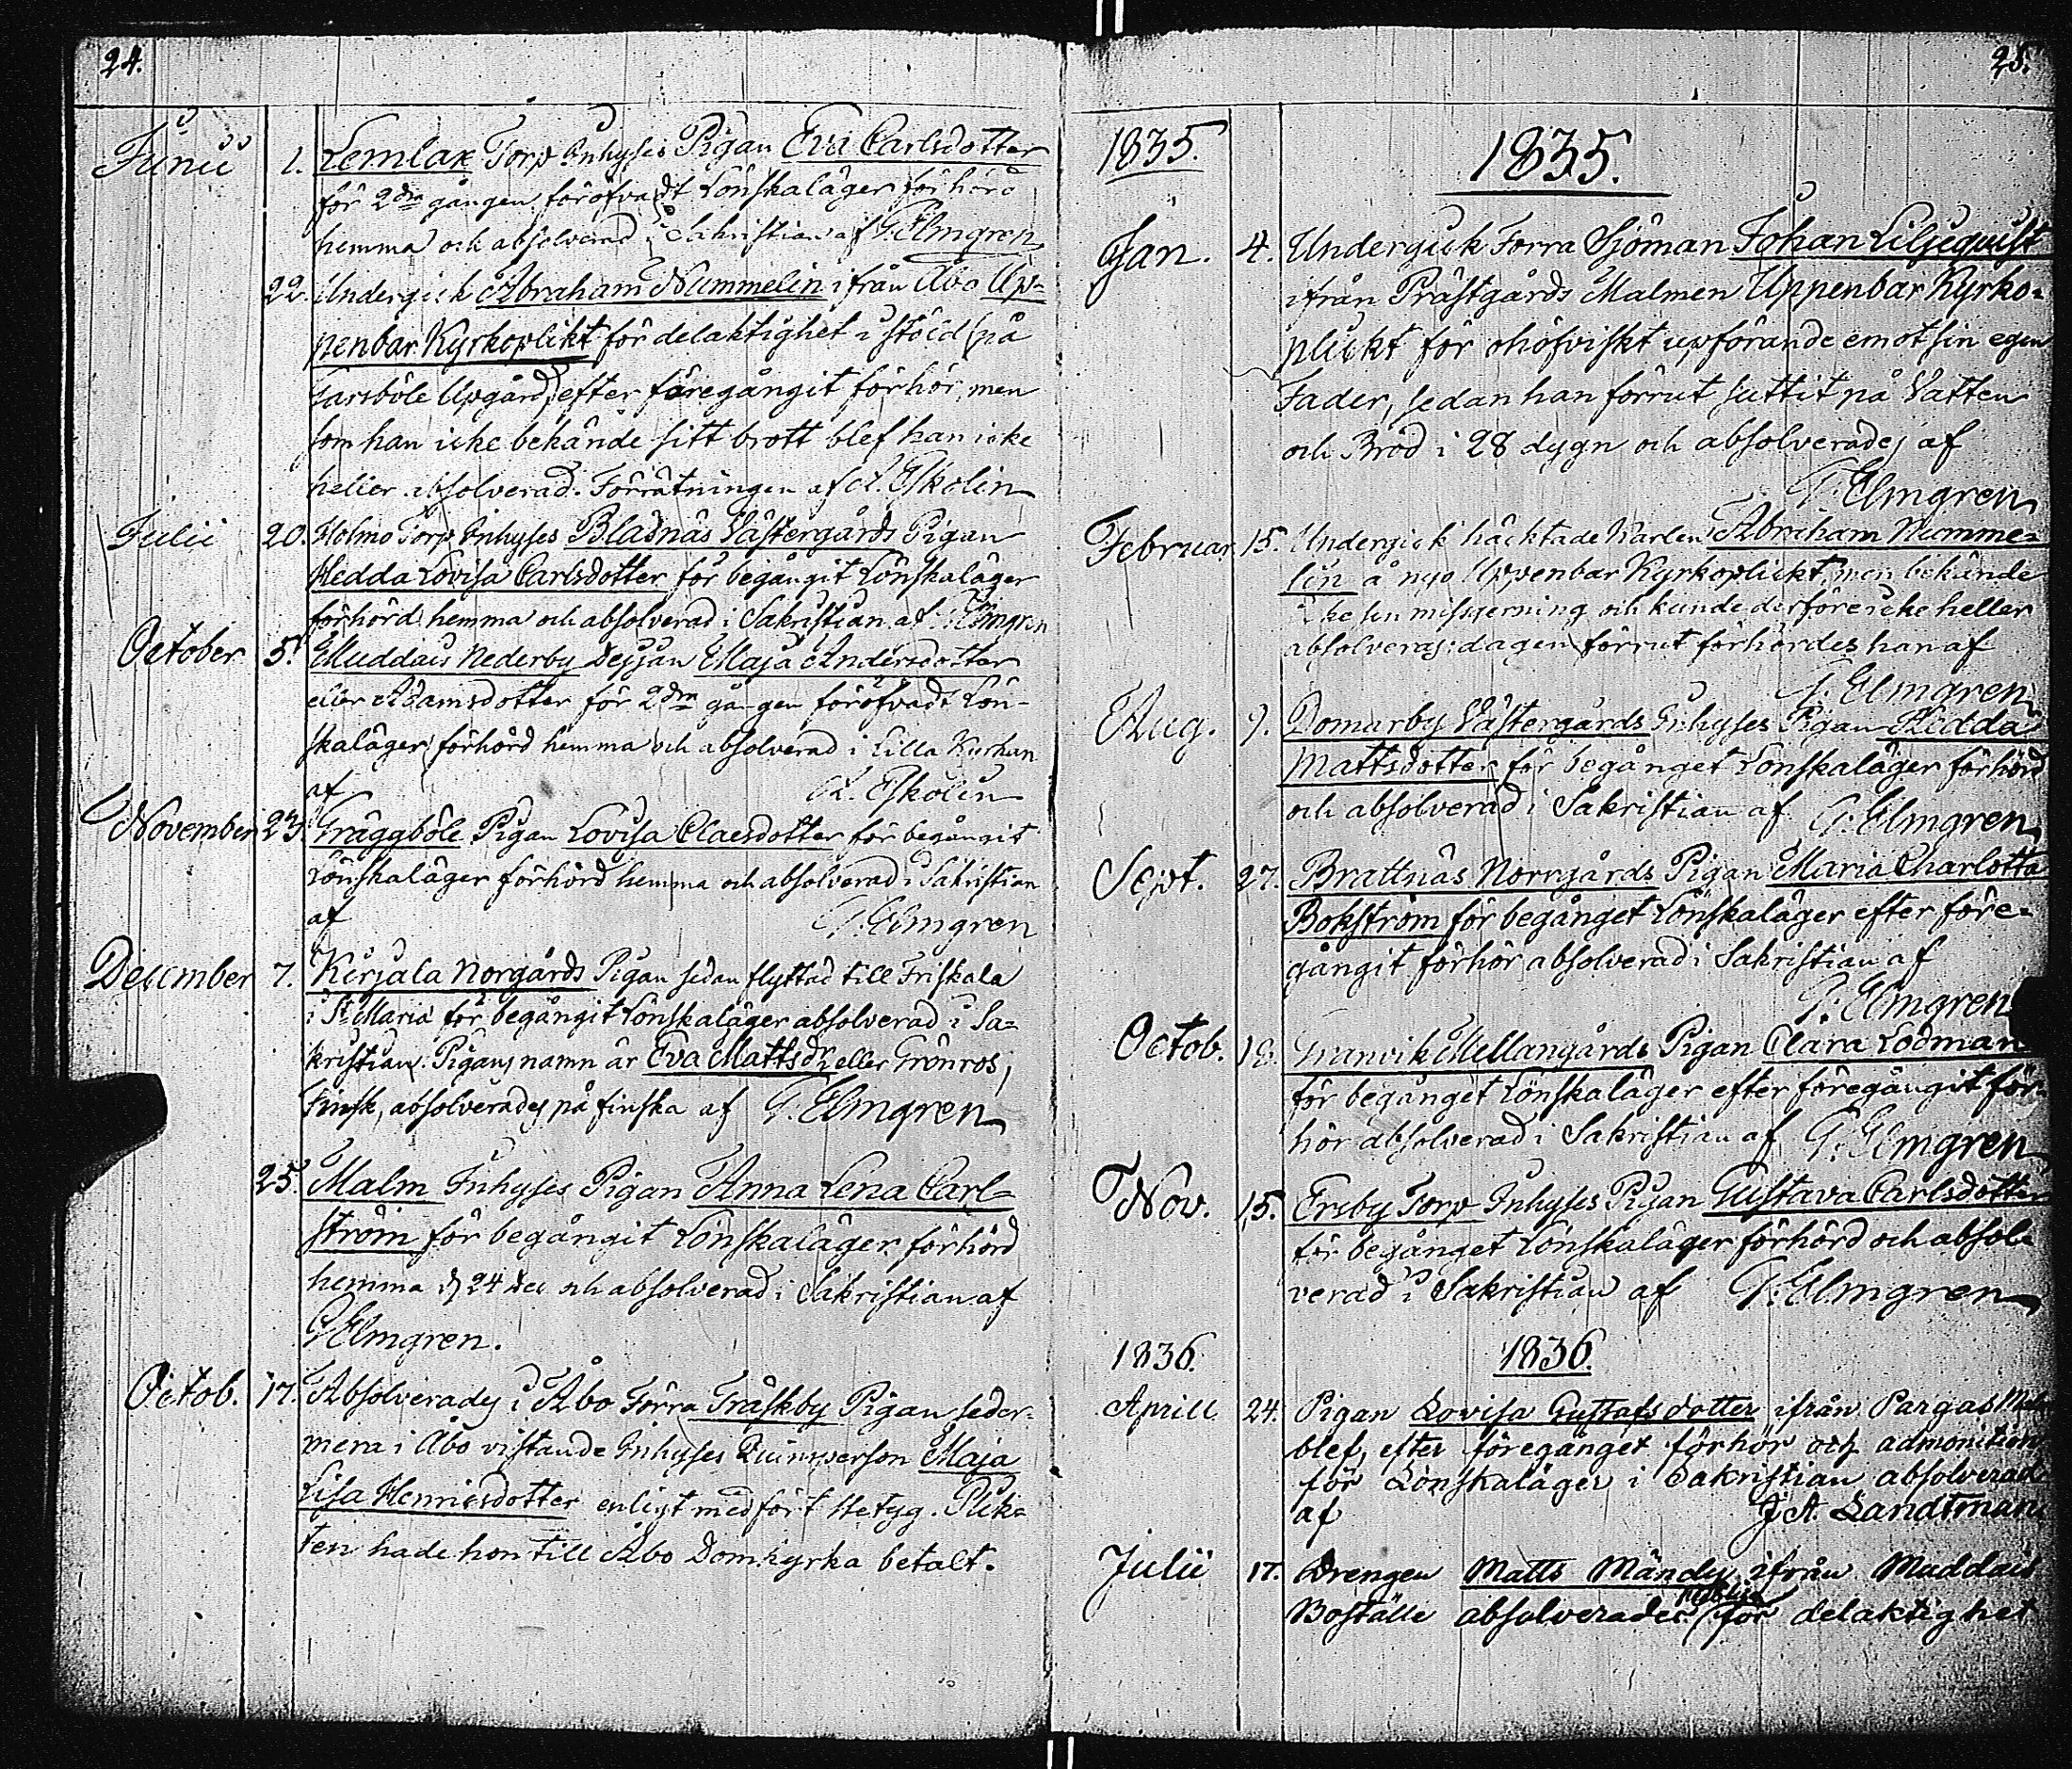 24.
Junii 1. Lemlax Torp Inhyses Pigan Eva Carlsdotter
för 2dra gången föröfvadt Lönskaläger förhörd
hemma och absolverad i Sakristian af G. Elmgren
22. Undergick Abraham Nummelin ifrån Åbo Up-
penbar Kyrkoplikt för delaktighet i stöld (på
Larsböle Upgård) efter föregångit förhör, men
som han icke bekände sitt brott blef han icke
heller absolverad. Förrätningen af A. Eskolin
Julii 20. Holmo Torp Inhyses Bläsnäs Västergårds Pigan
Hedda Lovisa Carlsdotter för begångit Lönskaläger
förhörd hemma och absolverad i Sakristian af G. Elmgren
October 5. Muddais Nederby Dejjan Maja Andersdotter
eller Adamsdotter för 2dra gången föröfvadt Lön-
skaläger förhörd hemma och absolverad i Lilla Kyrkan
af A. Eskolin
November 23. Gräggböle Pigan Lovisa Claesdotter för begångit
Lönskaläger förhörd hemma och absolverad i Sakristian
af G. Elmgren
December 7. Kirjala Norgårds Pigan sedan flyttad till Friskala
i St Maria för begångit Lönskaläger absolverad i Sa-
kristian. Pigans namn är Eva Mattsdr eller Grönros,
Finsk, absolverades på finska af G. Elmgren
25. Malm Inhyses Pigan Anna Lena Carl-
ström för begångit Lönskaläger förhörd
hemma d 24 dec och absolverad i Sakristian af
G Elmgren.
Octob. 17. Absolverades i Åbo Förra Träskby Pigan seder-
mera i Åbo vistande Inhyses Qvinnsperson Maja
Lisa Henricsdotter enligt medfört betyg. Plik-
ten hade hon till Åbo Domkyrka betalt.
25.
1835. 1835.
Jan. 4. Undergick Förra Sjöman Johan Liljeqvist
ifrån Prästgårds Malmen Uppenbar Kyrko-
plickt för ohöfviskt upförande emot sin egen
Fader, sedan han förrut suttit på Vatten
och Bröd i 28 dygn och absolverades af
G. Elmgren
Februar. 15. Undergick häcktade Karlen Abraham Numme-
lin å nyo Uppenbar Kyrkoplickt, men bekände
icke sin missgerning och kunde derföre icke heller
absolveras: dagen förrut förhördes han af
G. Elmgren
Aug. 9. Domarby Västergårds Inhyses Pigan Hedda
Mattsdotter för begånget Lönskaläger förhörd
och absolverad i Sakristian af G. Elmgren
Sept. 27. Brattnäs Norrgårds Pigan Maria Charlotta
Bokström för begånget Lönskaläger efter före-
gångit förhör absolverad i Sakristian af
G. Elmgren
Octob. 18. Granvik Mellangårds Pigan Clara Lodman
för begånget Lönskaläger efter föregångit för-
hör absolverad i Sakristian af G. Elmgren
Nov. 15. Ersby Torp Inhyses Pigan Gustava Carlsdotter
för begånget Lönskaläger förhörd och absol-
verad i Sakristian af G. Elmgren
1836. 1836.
Aprill 24. Pigan Lovisa Gustafsdotter ifrån Pargas
blef, efter föregånget förhör och admonition
för Lönskaläger i Sakristian absolverad
af J A. Landtman
Julii 17. Drengen Matts Mändy ifrån Muddais
Boställe absolverades för delaktighet